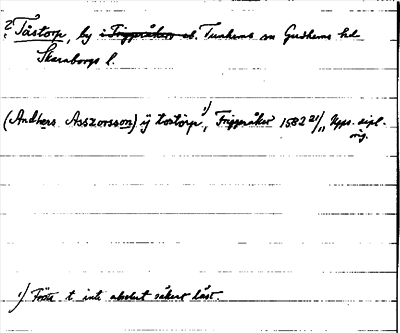 ? Tåstorp, by i Friggeråker el. Tunhems sn Gudhems hd
Skaraborgs l.
(Andhers Asszorsson) ÿ tostörp 1), Friggeråker 1582 21/11 Upps. dipl.
orig.
1) Förste t inte absolut säkert läst.